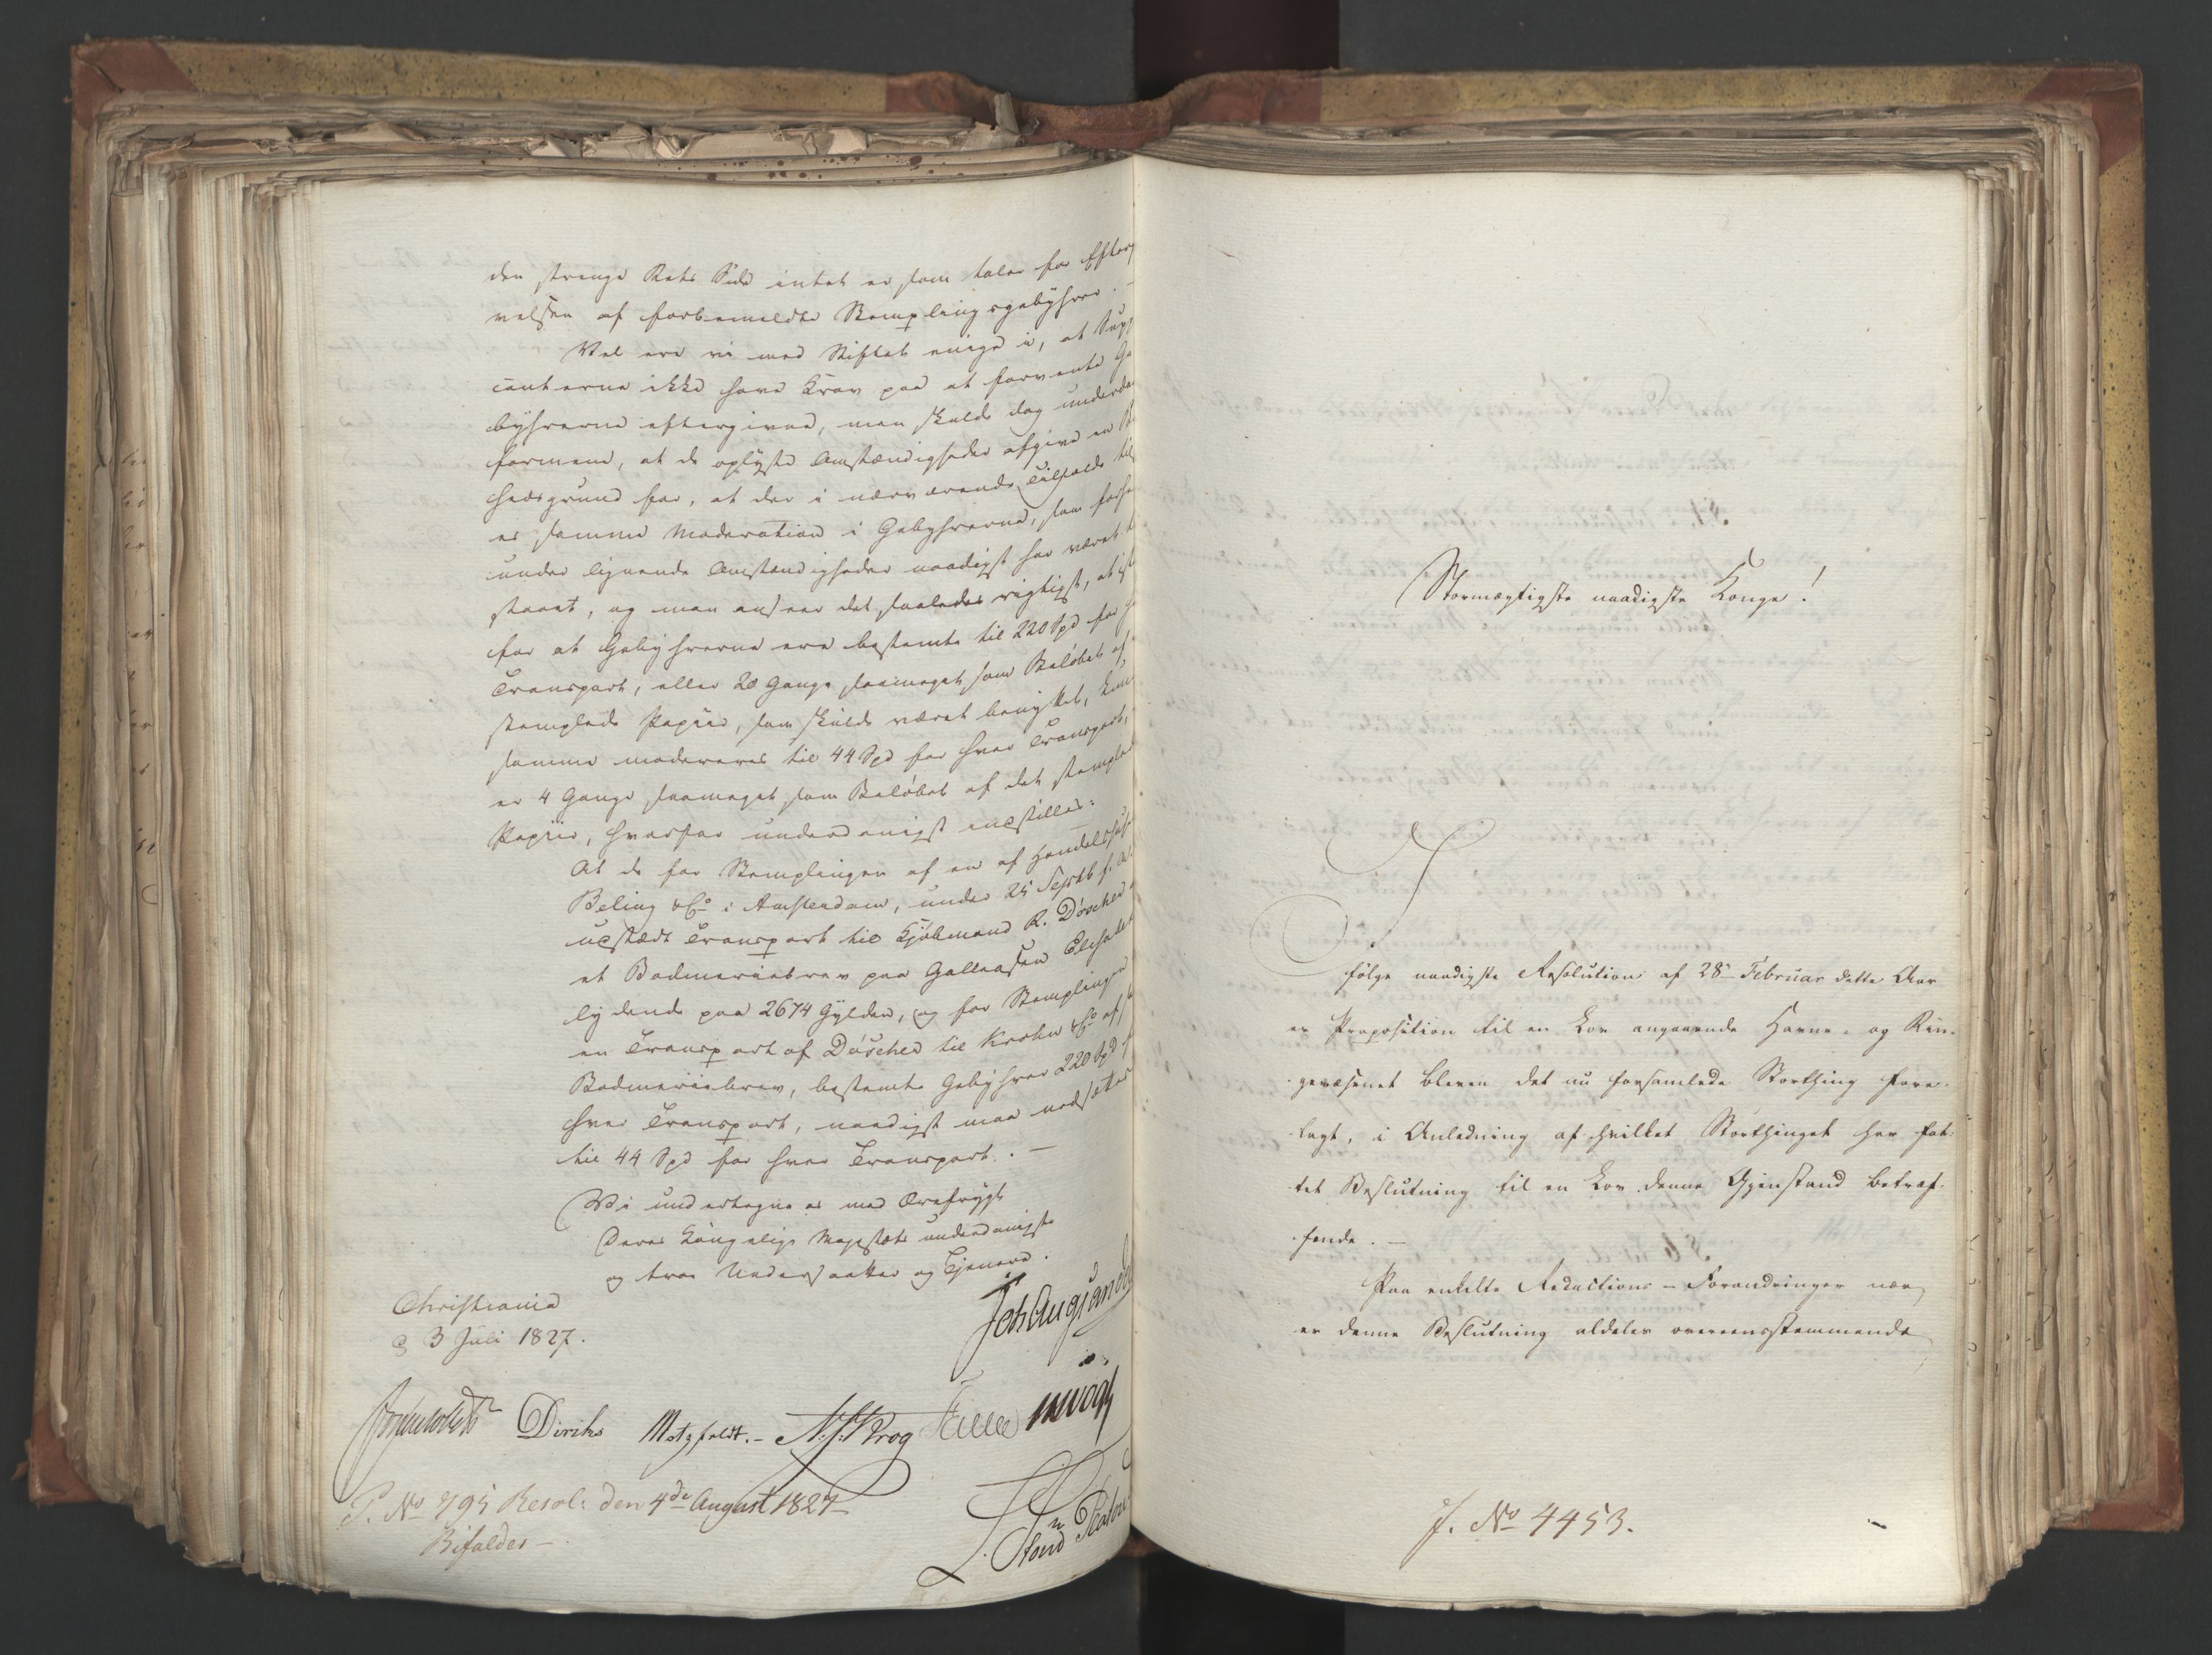 den strenge Rets Side intet er som taler for Efterg
velsen af forbemeldte Stemplingsgebyhrer. —
Vel ere vi med Stiftet enige i, at Supp
canterne ikke have Krav paa at forvente Ge
byhrerne eftergivne, men skulde dog underda
formene, at de oplyste Omstændigheder afgive en Bi
hedsgrund for, at der i nærværende Tilfælde til
es samme Moderation i Gebyhrerne, som forhe
under lignende Omstændigheder naadigst har været
staaet, og man anseer det saaledes rigtigst, at ist
for at Gebyhrerne ere bestemte til 220 Spd for
Transport, eller 20 Gange saameget som Beløbet af
stemplede Papiir, som skulde været benyttet, kun
samme modereres til 44 Spd for hver Transport,
er 4 Gange saameget som Beløbet af det stemple
Papiir, hvorfor underdanigst indstilles:
At de for Stemplingen af en af Handelshuse
Beling & Co i Amsterdam, under 25 Septb f. A.
udstædt Transport til Kjøbmand R. Döscher
et Bodmeriebrev paa Galleasen Elisabet
lydende paa 2674 Gylden, og for Stemplingen
en Transport af Döscher til Krohn & Co af
Bodmeriebrev, bestemte Gebyhrer 220 Spd
hver Transport, naadigst maa nedsættes
til 44 Spd for hver Transport. —
Vi undertegne os med Ærefrygt
Deres Kongelige Majestæts underdanigste
og troe Undersaatter og Tjenere.
Christiania
d 3 Juli 1827.
Joh Aug Sandels
Diriks Motzfeldt. — Krog Fasting
P. No 795 Resol: den 4de August 1827
Bifaldes —
Stormægtigste naadigste Konge!
I
følge naadigste Resolution af 28 Februar dette Aar
er Proposition til en Lov angaaende Havne- og Rin-
gevæsenet bleven det nu forsamlede Storthing fore-
lagt, i Anledning af hvilket Storthinget har fat-
tet Beslutning til en Lov denne Gjenstand betræf-
fende. —
Paa enkelte Redactions-Forandringer nær,
er denne Beslutning aldeles overeensstemmende
J. No 4453.